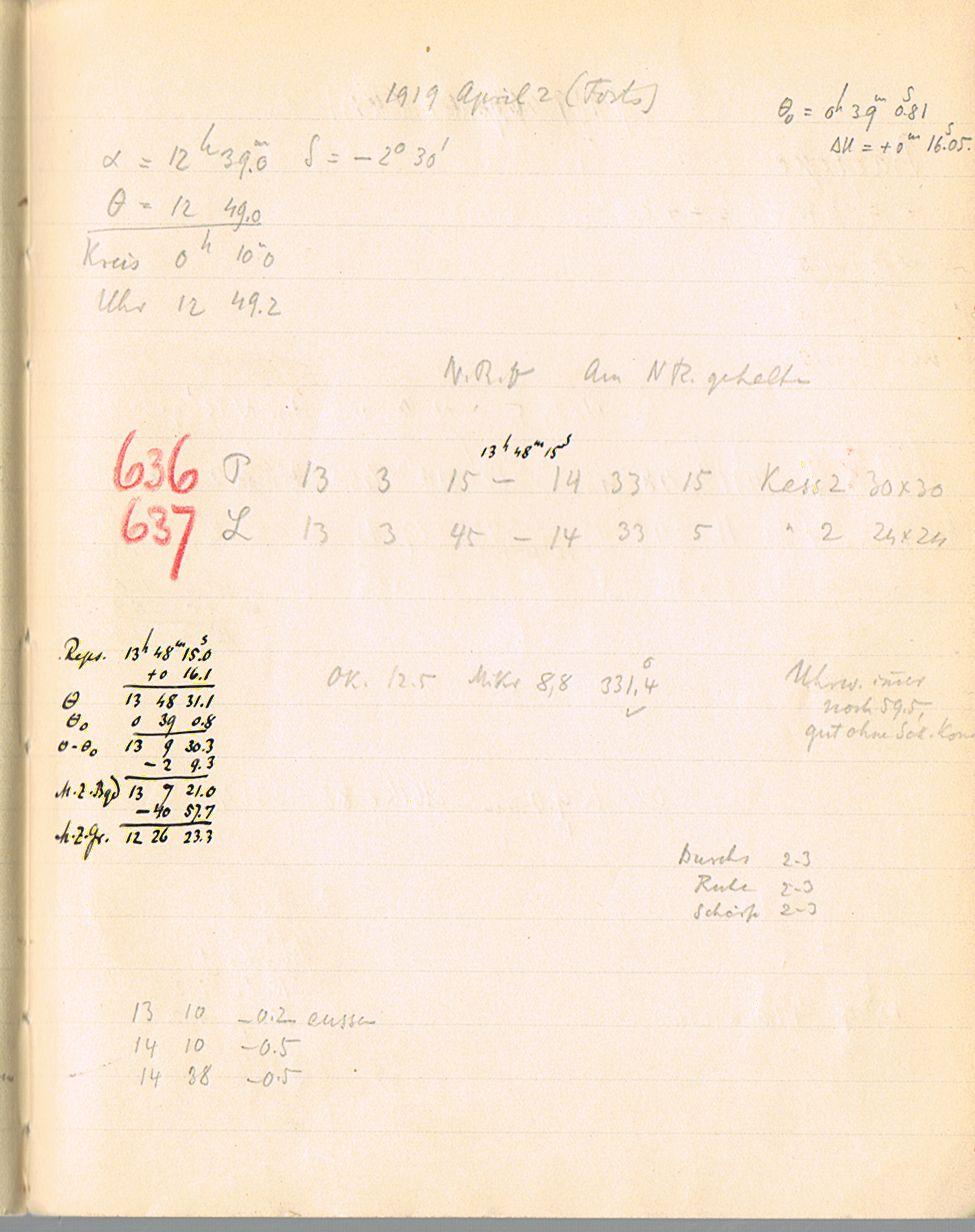 1919 April 2 (Forts)
θ₀ = 0ʰ 39ᵐ 0ˢ.81
ΔU = +0ᵐ 16ˢ.05.
α = 12ʰ 39ᵐ.0 δ = −2° 30'
θ = 12 49.0
Kreis 0ʰ 10ᵐ.0
Uhr 12 49.2
N.R.f Am NR. gehalten
13ʰ 48ᵐ 15ˢ
636 P 13 3 15 − 14 33 15 Kass 2 30×30
637 L 13 3 45 − 14 33 5 " 2 24×24
Reps. 13ʰ 48ᵐ 15ˢ.0
+0 16.1
θ 13 48 31.1
θ₀ 0 39 0.8
θ-θ₀ 13 9 30.3
−2 9.3
M.Z.Bgd 13 7 21.0
−40 57.7
M.Z.Gr. 12 26 23.3
OK. 12.5 Mikr 8,8 331°,4 ✓
Uhrw. immer
noch 59.5,
gut ohne Sek. Kon
Durchs 2-3
Ruhe 2-3
Schärfe 2-3
13 10 −0.2 aussen
14 10 −0.5
14 38 −0.5